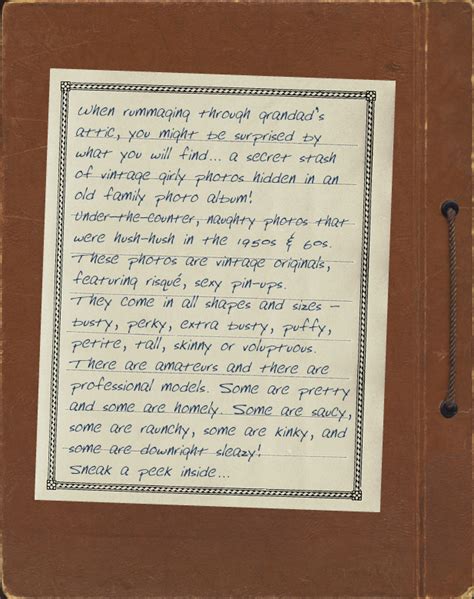 When rummaging through grandad's
attic, you might be surprised by
what you will find... a secret stash
of vintage girly photos hidden in an
old family photo album!
Under-the-counter, naughty photos that
were hush-hush in the 1950s & 60s.
These photos are vintage originals,
featuring risqué, sexy pin-ups.
They come in all shapes and sizes –
busty, perky, extra busty, puffy,
petite, tall, skinny or voluptuous.
There are amateurs and there are
professional models. Some are pretty
and some are homely. Some are saucy,
some are raunchy, some are kinky, and
some are downright sleazy!
Sneak a peek inside...